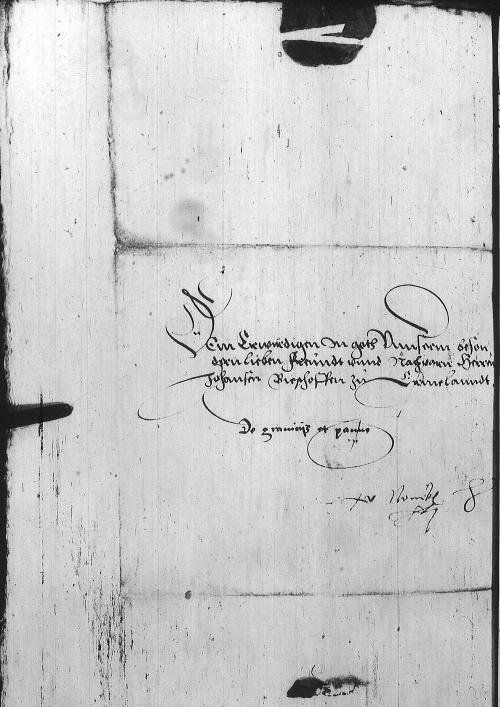 Dem Erwirdigen In goth Vnnserm beson
dern lieben freundt vnnd Nachparn Herrn
Johansen Bischoffen zu Ermelanndt
De et
xv Nouembr